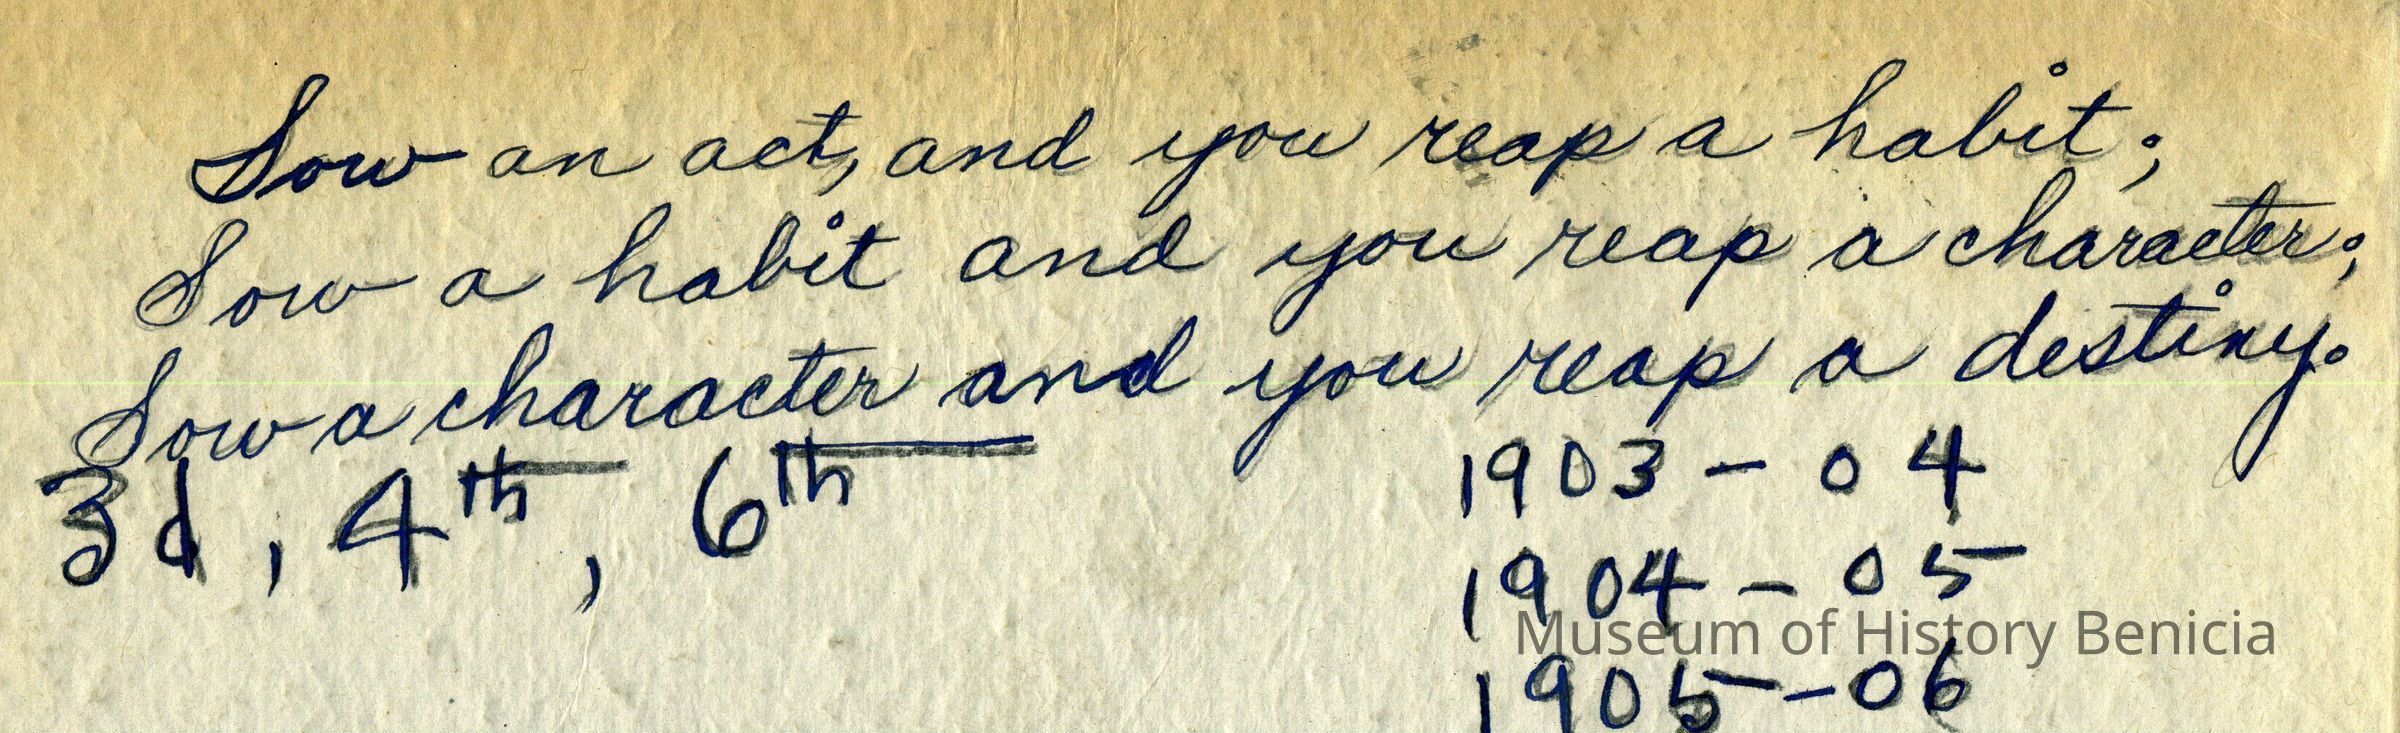 Sow an act, and you reap a habit;
Sow a habit and you reap a character;
Sow a character and you reap a destiny.
3d, 4th, 6th
1903 - 04
1904 - 05
Museum of History Benicia
1905 - 06